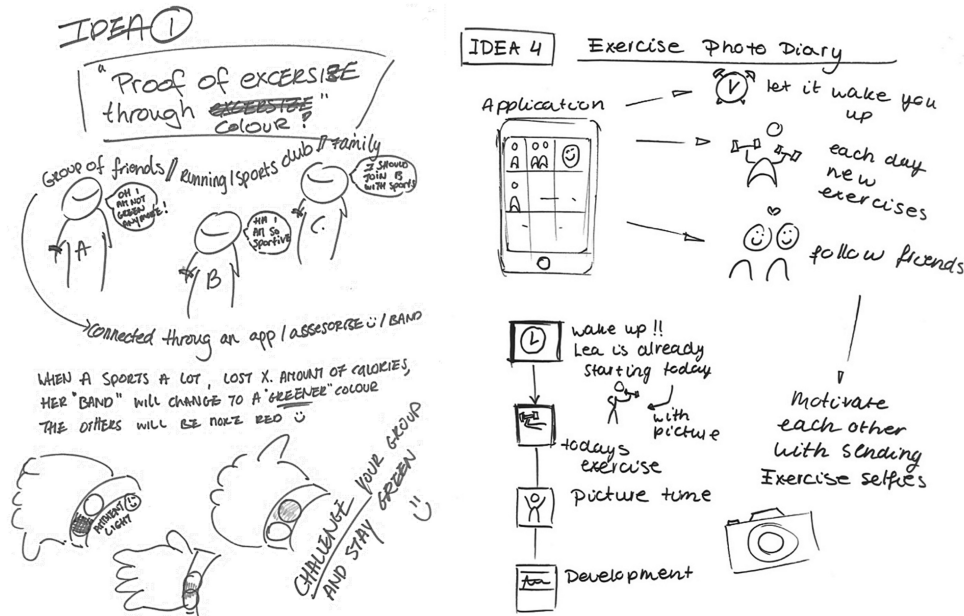 IDEA 1
"Proof of EXCERSIZE
through EXCERSIZE "
COLOUR?
GROUP of friends // Running/sports club // Family
OH I
AM NOT
GREEN
ANYMORE!
HA I
AM SO
SPORTIVE
I SHOULD
JOIN B
WITH SPORTS
A
B
C.
Connected throug an app / ASSESORBE / BAND
WHEN A SPORTS A LOT, LOST X. AMOUNT OF CALORIES,
HER "BAND" WILL CHANGE TO A "GREENER" COLOUR
THE OTHERS WILL BE MORE RED
AMBIENT
LIGHT
CHALLENGE YOUR GROUP
AND STAY GREEN
IDEA 4 Exercise Photo Diary
Application
let it wake you
up
each day
new
exercises
follow friends
wake up!!
Lea is already
starting today
with
picture
todays
exercise
Picture time
Development
Motivate
each other
with sending
Exercise selfies